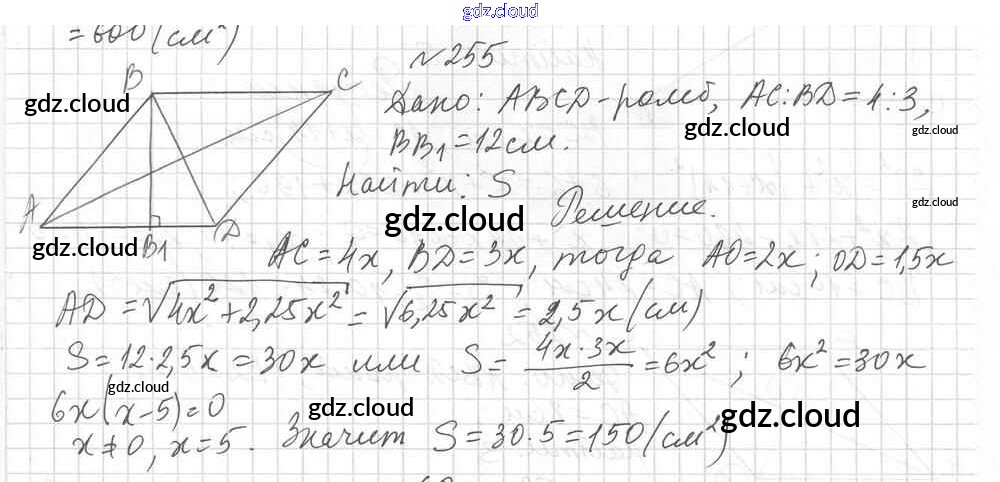 gdz.cloud
= 600 (см²)
№255
B C
gdz.cloud
Дано: ABCD - ромб, AC : BD = 4 : 3,
gdz.cloud gdz.cloud
BB₁ = 12 см.
Найти: S
A gdz.cloud gdz.cloud
Решение.
gdz.cloud B₁ D
AC = 4x, BD = 3x, тогда AO = 2x; OD = 1,5x
AD = √(4x² + 2,25x²) = √(6,25x²) = 2,5x (см)
S = 12 · 2,5x = 30x или S = (4x · 3x)/2 = 6x²; 6x² = 30x
gdz.cloud
6x(x - 5) = 0
gdz.cloud gdz.cloud
x ≠ 0, x = 5. Значит S = 30 · 5 = 150 (см²)